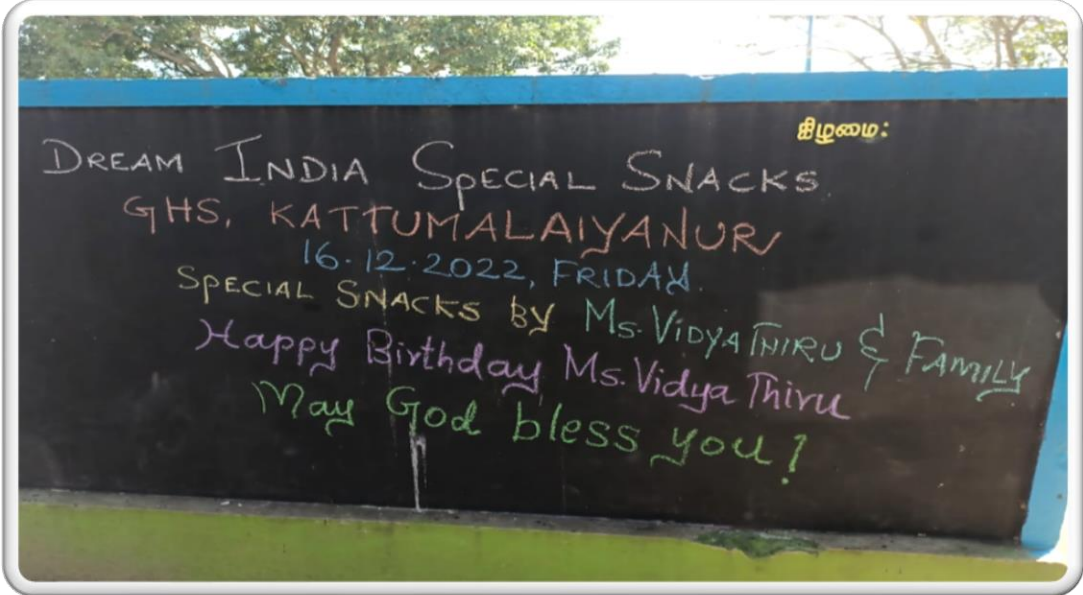 கிழமை:
DREAM INDIA SPECIAL SNACKS.
GHS, KATTUMALAIYANUR
16.12.2022, FRIDAY.
SPECIAL SNACKS BY Ms. VIDYA THIRU & FAMILY
Happy Birthday Ms. Vidya Thiru
May God bless you!